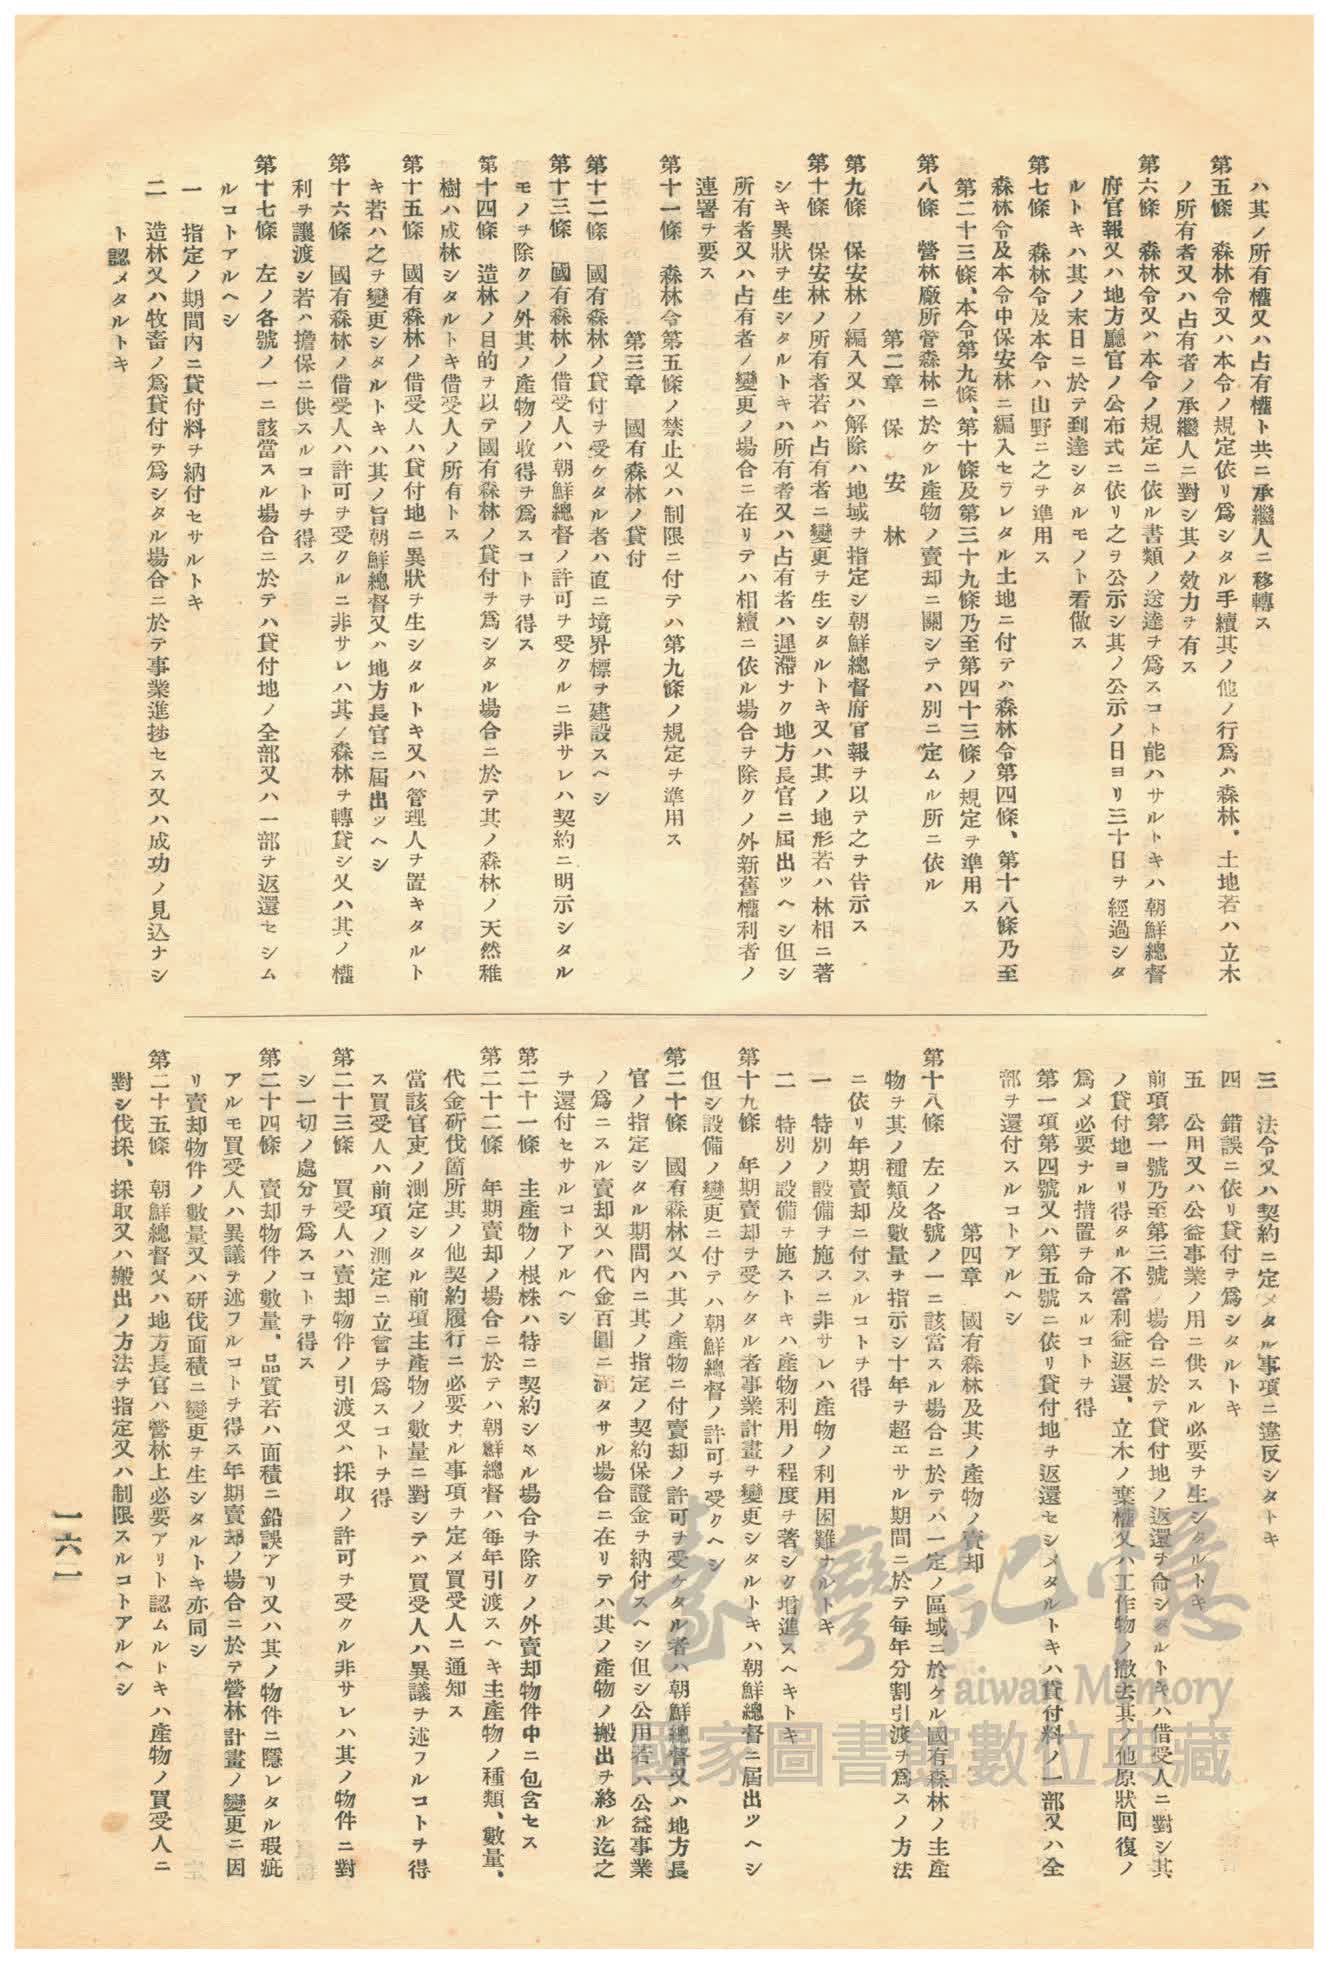 ハ其ノ所有權又ハ占有權ト共ニ承繼人ニ移轉ス
第五條　森林令又ハ本令ノ規定依リ爲シタル手續其ノ他ノ行爲ハ森林、土地若ハ立木
ノ所有者又ハ占有者ノ承繼人ニ對シ其ノ效力ヲ有ス
第六條　森林令又ハ本令ノ規定ニ依ル書類ノ送達ヲ爲スコト能ハサルトキハ朝鮮總督
府官報又ハ地方廳官ノ公布式ニ依リ之ヲ公示シ其ノ公示ノ日ヨリ三十日ヲ經過シタ
ルトキハ其ノ末日ニ於テ到達シタルモノト看做ス
第七條　森林令及本令ハ山野ニ之ヲ準用ス
森林令及本令中保安林ニ編入セラレタル土地ニ付テハ森林令第四條、第十八條乃至
第二十三條、本令第九條、第十條及第三十九條乃至第四十三條ノ規定ヲ準用ス
第八條　營林廠所管森林ニ於ケル產物ノ賣却ニ關シテハ別ニ定ムル所ニ依ル
第二章　保安林
第九條　保安林ノ編入又ハ解除ハ地域ヲ指定シ朝鮮總督府官報ヲ以テ之ヲ告示ス
第十條　保安林ノ所有者若ハ占有者ニ變更ヲ生シタルトキ又ハ其ノ地形若ハ林相ニ著
シキ異狀ヲ生シタルトキハ所有者又ハ占有者ハ遲滯ナク地方長官ニ屆出ツヘシ但シ
所有者又ハ占有者ノ變更ノ場合ニ在リテハ相續ニ依ル場合ヲ除クノ外新舊權利者ノ
連署ヲ要ス
第十一條　森林令第五條ノ禁止又ハ制限ニ付テハ第九條ノ規定ヲ準用ス
第三章　國有森林ノ貸付
第十二條　國有森林ノ貸付ヲ受ケタル者ハ直ニ境界標ヲ建設スヘシ
第十三條　國有森林ノ借受人ハ朝鮮總督ノ許可ヲ受クルニ非サレハ契約ニ明示シタル
モノヲ除クノ外其ノ產物ノ收得ヲ爲スコトヲ得ス
第十四條　造林ノ目的ヲ以テ國有森林ノ貸付ヲ爲シタル場合ニ於テ其ノ森林ノ天然稚
樹ハ成林シタルトキ借受人ノ所有トス
第十五條　國有森林ノ借受人ハ貸付地ニ異狀ヲ生シタルトキ又ハ管理人ヲ置キタルト
キ若ハ之ヲ變更シタルトキハ其ノ旨朝鮮總督又ハ地方長官ニ屆出ツヘシ
第十六條　國有森林ノ借受人ハ許可ヲ受クルニ非サレハ其ノ森林ヲ轉貸シ又ハ其ノ權
利ヲ讓渡シ若ハ擔保ニ供スルコトヲ得ス
第十七條　左ノ各號ノ一ニ該當スル場合ニ於テハ貸付地ノ全部又ハ一部ヲ返還セシム
ルコトアルヘシ
一　指定ノ期間內ニ貸付料ヲ納付セサルトキ
二　造林又ハ牧畜ノ爲貸付ヲ爲シタル場合ニ於テ事業進捗セス又ハ成功ノ見込ナシ
ト認メタルトキ
三　法令又ハ契約ニ定メタル事項ニ違反シタトキ
四　錯誤ニ依リ貸付ヲ爲シタルトキ
五　公用又ハ公益事業ノ用ニ供スル必要ヲ生シタルトキ
前項第一號乃至第三號ノ場合ニ於テ貸付地ノ返還ヲ命シタルトキハ借受人ニ對シ其
ノ貸付地ヨリ得タル不當利益返還、立木ノ棄權又ハ工作物ノ撤去其ノ他原狀囘復ノ
爲メ必要ナル措置ヲ命スルコトヲ得
第一項第四號又ハ第五號ニ依リ貸付地ヲ返還セシメタルトキハ貸付料ノ一部又ハ全
部ヲ還付スルコトアルヘシ
第四章　國有森林及其ノ產物ノ賣却
第十八條　左ノ各號ノ一ニ該當スル場合ニ於テハ一定ノ區域ニ於ケル國有森林ノ主產
物ヲ其ノ種類及數量ヲ指示シ十年ヲ超エサル期間ニ於テ每年分割引渡ヲ爲スノ方法
ニ依リ年期賣却ニ付スルコトヲ得
一　特別ノ設備ヲ施スニ非サレハ產物ノ利用困難ナルトキ
二　特別ノ設備ヲ施ストキハ產物利用ノ程度ヲ著シク增進スヘキトキ
第十九條　年期賣却ヲ受ケタル者事業計畫ヲ變更シタルトキハ朝鮮總督ニ屆出ツヘシ
但シ設備ノ變更ニ付テハ朝鮮總督ノ許可ヲ受クヘシ
第二十條　國有森林又ハ其ノ產物ニ付賣却ノ許可ヲ受ケタル者ハ朝鮮總督又ハ地方長
官ノ指定シタル期間內ニ其ノ指定ノ契約保證金ヲ納付スヘシ但シ公用若ハ公益事業
ノ爲ニスル賣却又ハ代金百圓ニ滿タサル場合ニ在リテハ其ノ產物ノ搬出ヲ終ル迄之
ヲ還付セサルコトアルヘシ
第二十一條　主產物ノ根株ハ特ニ契約シタル場合ヲ除クノ外賣却物件中ニ包含セス
第二十二條　年期賣却ノ場合ニ於テハ朝鮮總督ハ每年引渡スヘキ主產物ノ種類、數量、
代金斫伐箇所其ノ他契約履行ニ必要ナル事項ヲ定メ買受人ニ通知ス
當該官吏ノ測定シタル前項主產物ノ數量ニ對シテハ買受人ハ異議ヲ述フルコトヲ得
ス買受人ハ前項ノ測定ニ立會ヲ爲スコトヲ得
第二十三條　買受人ハ賣却物件ノ引渡又ハ採取ノ許可ヲ受クル非サレハ其ノ物件ニ對
シ一切ノ處分ヲ爲スコトヲ得ス
第二十四條　賣却物件ノ數量、品質若ハ面積ニ鉛誤アリ又ハ其ノ物件ニ隱レタル瑕疵
アルモ買受人ハ異議ヲ述フルコトヲ得ス年期賣却ノ場合ニ於テ營林計畫ノ變更ニ因
リ賣却物件ノ數量又ハ研伐面積ニ變更ヲ生シタルトキ亦同シ
第二十五條　朝鮮總督又ハ地方長官ハ營林上必要アリト認ムルトキハ產物ノ買受人ニ
對シ伐採、採取又ハ搬出ノ方法ヲ指定又ハ制限スルコトアルヘシ
一六一
臺灣記憶
Taiwan Memory
國家圖書館數位典藏